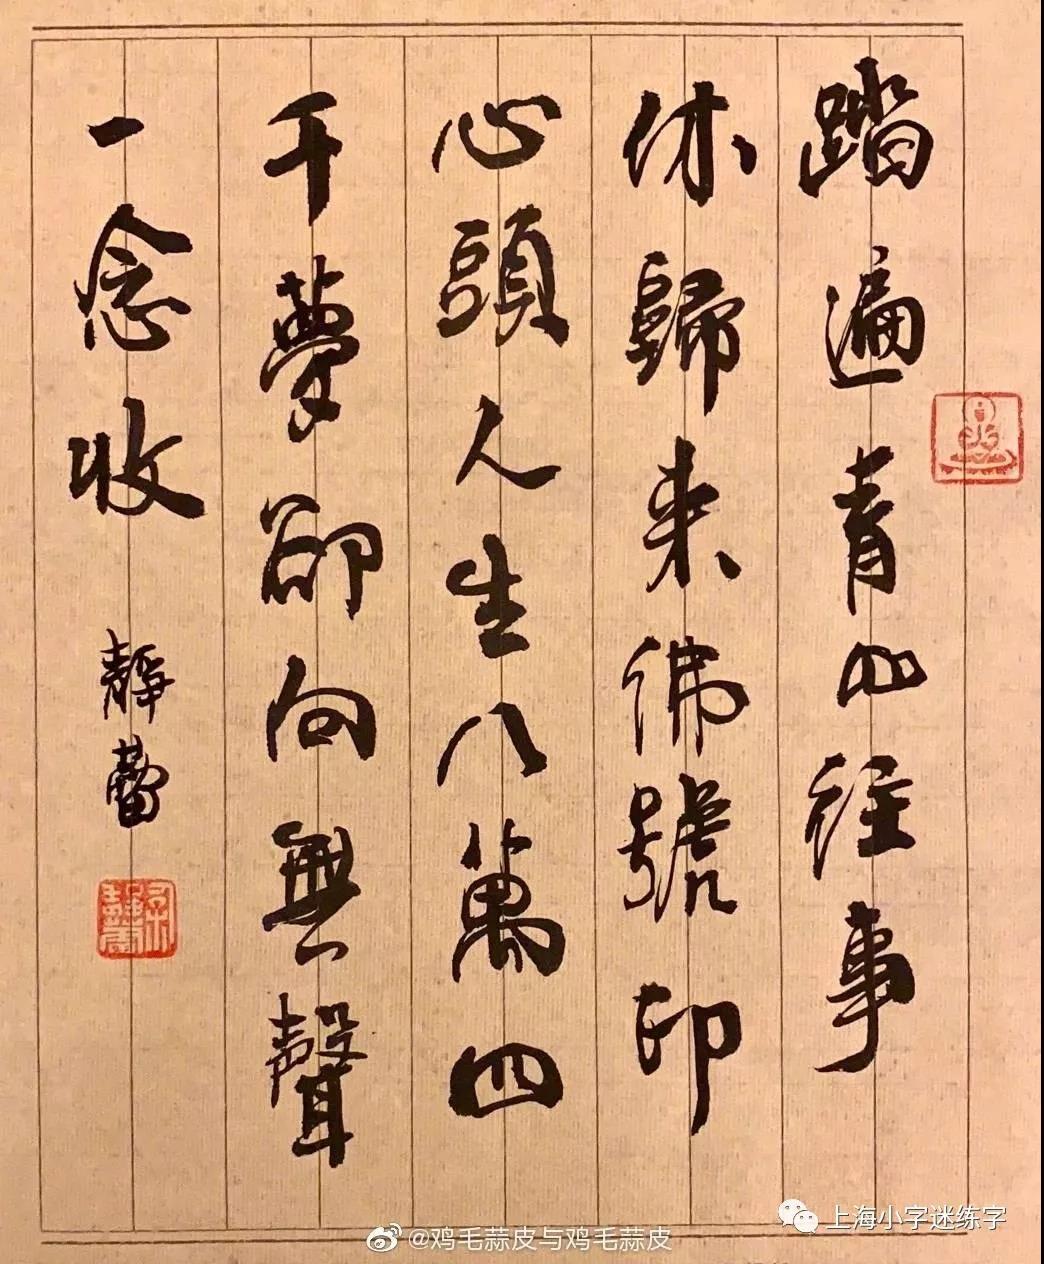 踏遍青山往事
休歸来佛號印
心頭人生八萬四
千夢卻向無聲
一念收
靜蕾
徐靜蕾
@鸡毛蒜皮与鸡毛蒜皮
上海小字迷练字